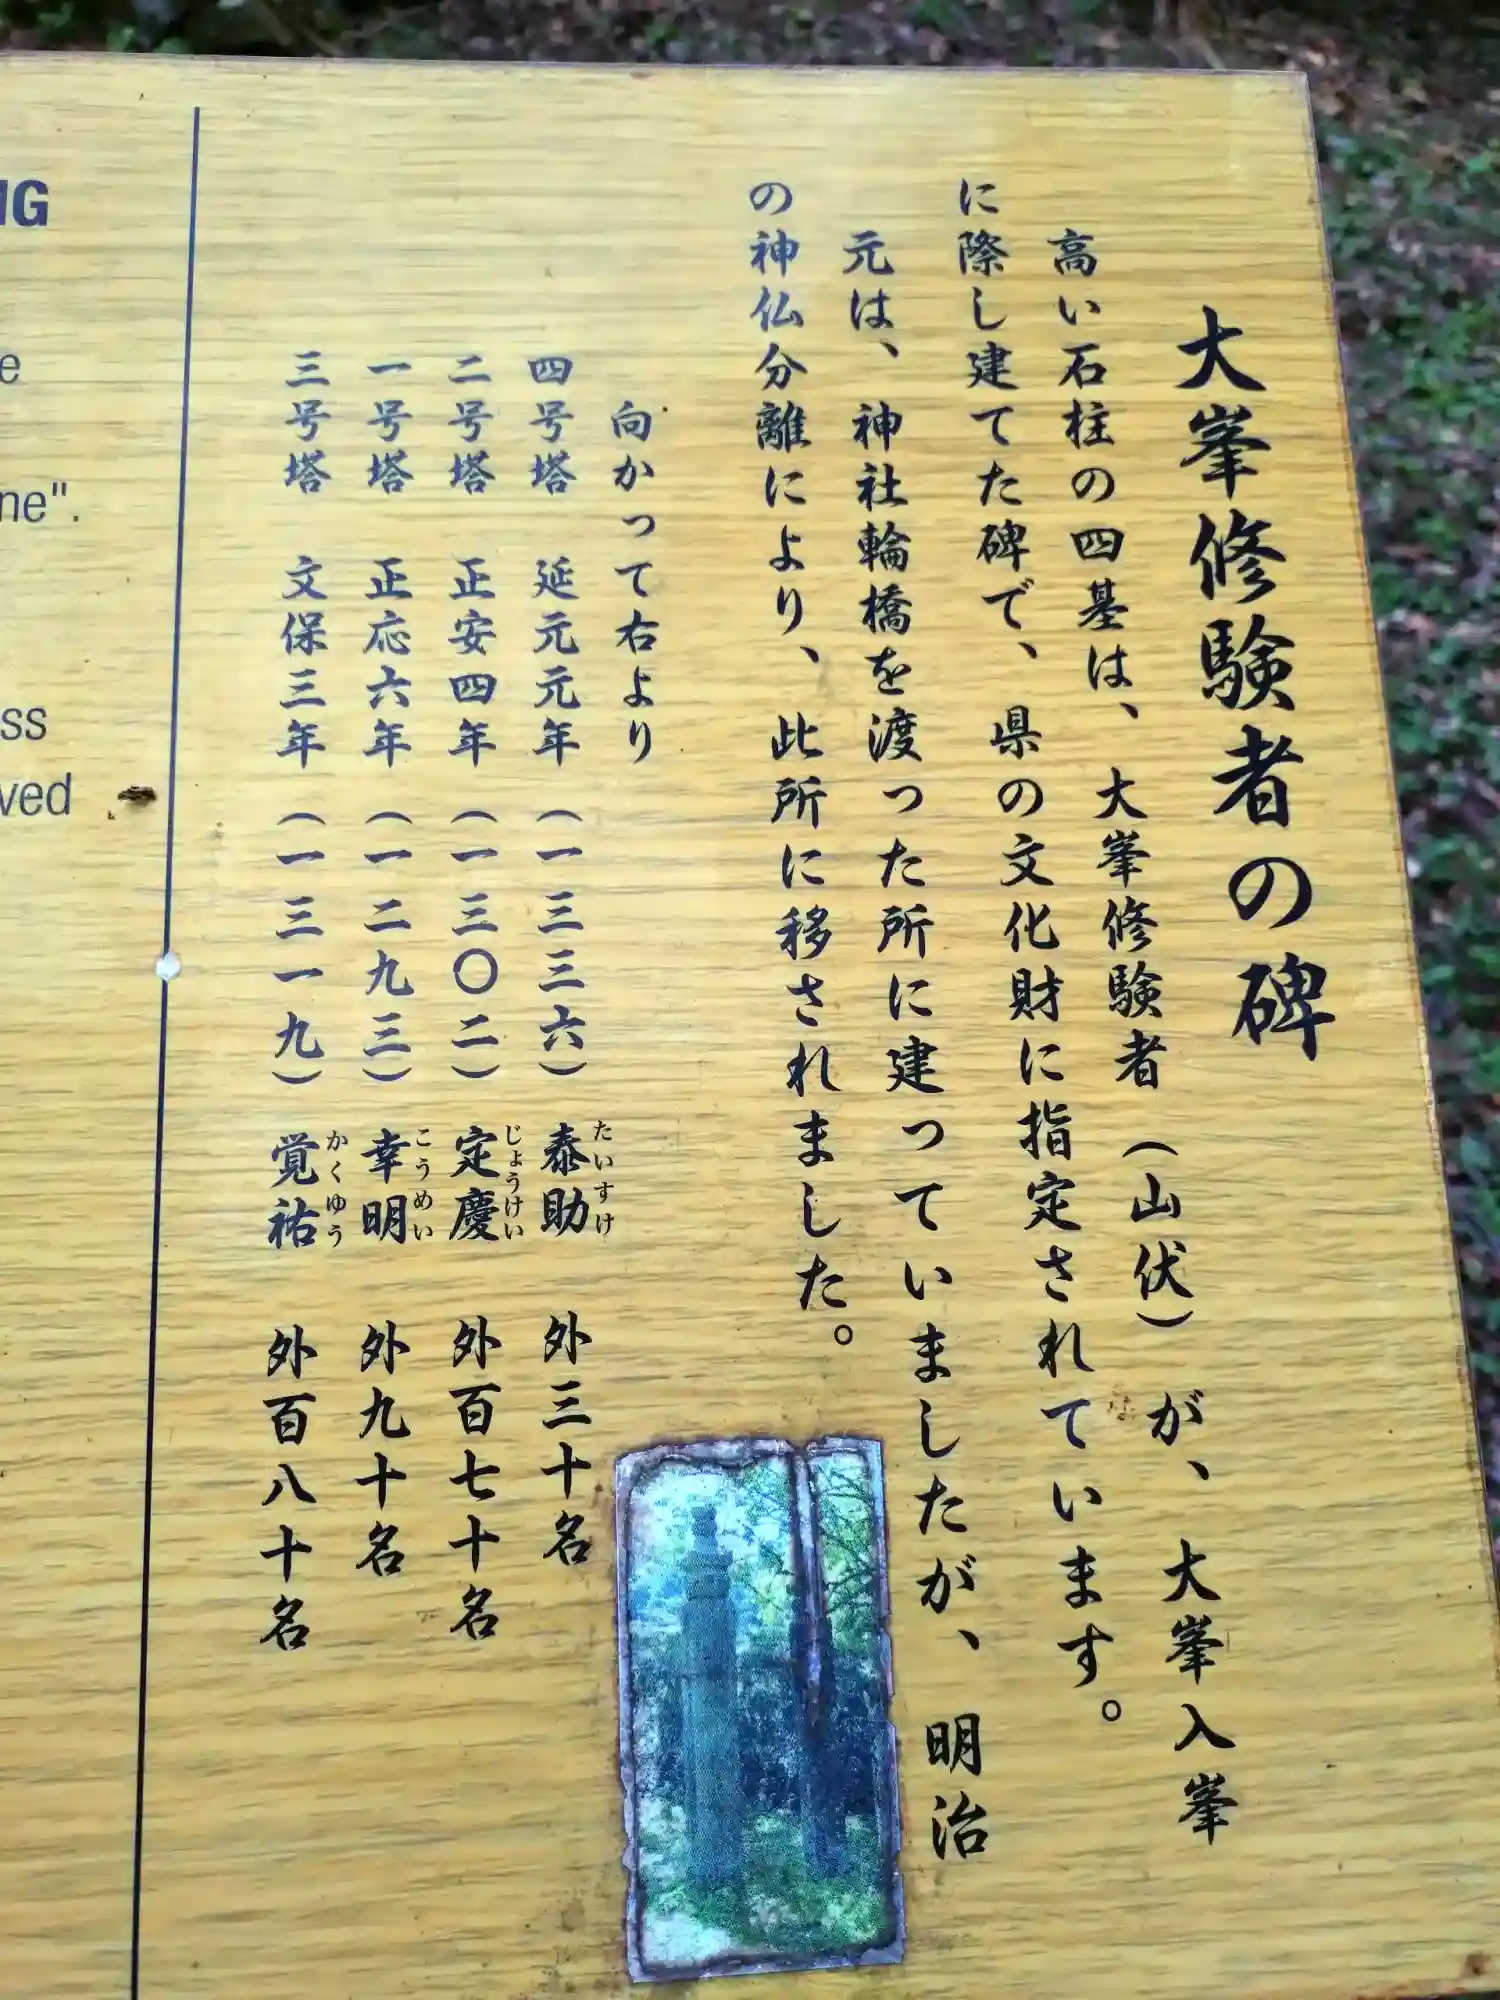 大峯修験者の碑
高い石柱の四基は、大峯修験者（山伏）が、大峯入峯
に際し建てた碑で、県の文化財に指定されています。
元は、神社輪橋を渡った所に建っていましたが、明治
の神仏分離により、此所に移されました。
向かって右より
四号塔 延元元年（一三三六）泰助 外三十名
たいすけ
二号塔 正安四年（一三〇二）定慶 外百七十名
じょうけい
一号塔 正応六年（一二九三）幸明 外九十名
こうめい
三号塔 文保三年（一三一九）覚祐 外百八十名
かくゆう
NG
e
ne".
ss
ved